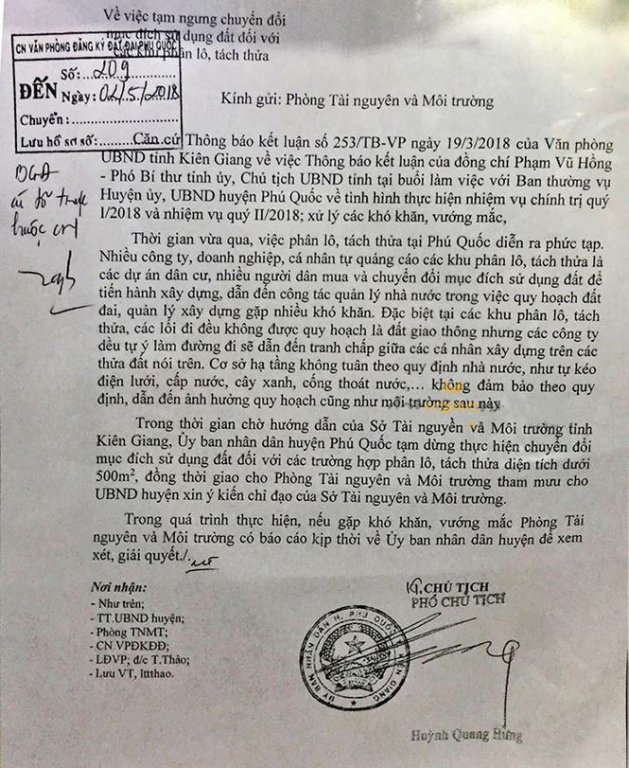 Về việc tạm ngưng chuyển đổi
mục đích sử dụng đất đối với
các khu phân lô, tách thửa
CN VĂN PHÒNG ĐĂNG KÝ ĐẤT ĐAI PHÚ QUỐC
ĐẾN
Số: 209
Ngày: 02/5/2018
Chuyển:
Lưu hồ sơ số:
Kính gửi: Phòng Tài nguyên và Môi trường
Căn cứ Thông báo kết luận số 253/TB-VP ngày 19/3/2018 của Văn phòng
UBND tỉnh Kiên Giang về việc Thông báo kết luận của đồng chí Phạm Vũ Hồng
- Phó Bí thư tỉnh ủy, Chủ tịch UBND tỉnh tại buổi làm việc với Ban thường vụ
Huyện ủy, UBND huyện Phú Quốc về tình hình thực hiện nhiệm vụ chính trị quý
I/2018 và nhiệm vụ quý II/2018; xử lý các khó khăn, vướng mắc,
Thời gian vừa qua, việc phân lô, tách thửa tại Phú Quốc diễn ra phức tạp.
Nhiều công ty, doanh nghiệp, cá nhân tự quảng cáo các khu phân lô, tách thửa là
các dự án dân cư, nhiều người dân mua và chuyển đổi mục đích sử dụng đất để
tiến hành xây dựng, dẫn đến công tác quản lý nhà nước trong việc quy hoạch đất
đai, quản lý xây dựng gặp nhiều khó khăn. Đặc biệt tại các khu phân lô, tách
thửa, các lối đi đều không được quy hoạch là đất giao thông nhưng các công ty
đều tự ý làm đường đi sẽ dẫn đến tranh chấp giữa các cá nhân xây dựng trên các
thửa đất nói trên. Cơ sở hạ tầng không tuân theo quy định nhà nước, như tự kéo
điện lưới, cấp nước, cây xanh, cống thoát nước,... không đảm bảo theo quy
định, dẫn đến ảnh hưởng quy hoạch cũng như môi trường sau này
Trong thời gian chờ hướng dẫn của Sở Tài nguyên và Môi trường tỉnh
Kiên Giang, Ủy ban nhân dân huyện Phú Quốc tạm dừng thực hiện chuyển đổi
mục đích sử dụng đất đối với các trường hợp phân lô, tách thửa diện tích dưới
500m², đồng thời giao cho Phòng Tài nguyên và Môi trường tham mưu cho
UBND huyện xin ý kiến chỉ đạo của Sở Tài nguyên và Môi trường.
Trong quá trình thực hiện, nếu gặp khó khăn, vướng mắc Phòng Tài
nguyên và Môi trường có báo cáo kịp thời về Ủy ban nhân dân huyện để xem
xét, giải quyết./.
Nơi nhận:
- Như trên;
- TT.UBND huyện;
- Phòng TNMT;
- CN VPĐKĐĐ;
- LĐVP; đ/c T.Thảo;
- Lưu VT, lttthao.
KT. CHỦ TỊCH
PHÓ CHỦ TỊCH
ỦY BAN NHÂN DÂN H. PHÚ QUỐC T. KIÊN GIANG
Huỳnh Quang Hưng